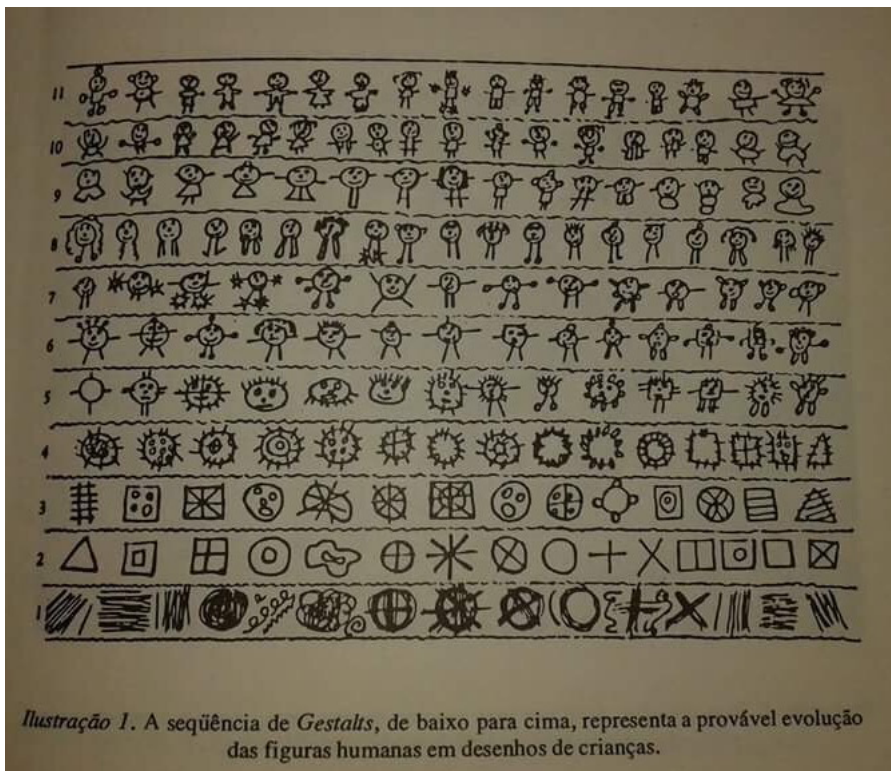 11
10
9
8
7
6
5
4
3
2
1
Ilustração 1. A seqüência de Gestalts, de baixo para cima, representa a provável evolução
das figuras humanas em desenhos de crianças.